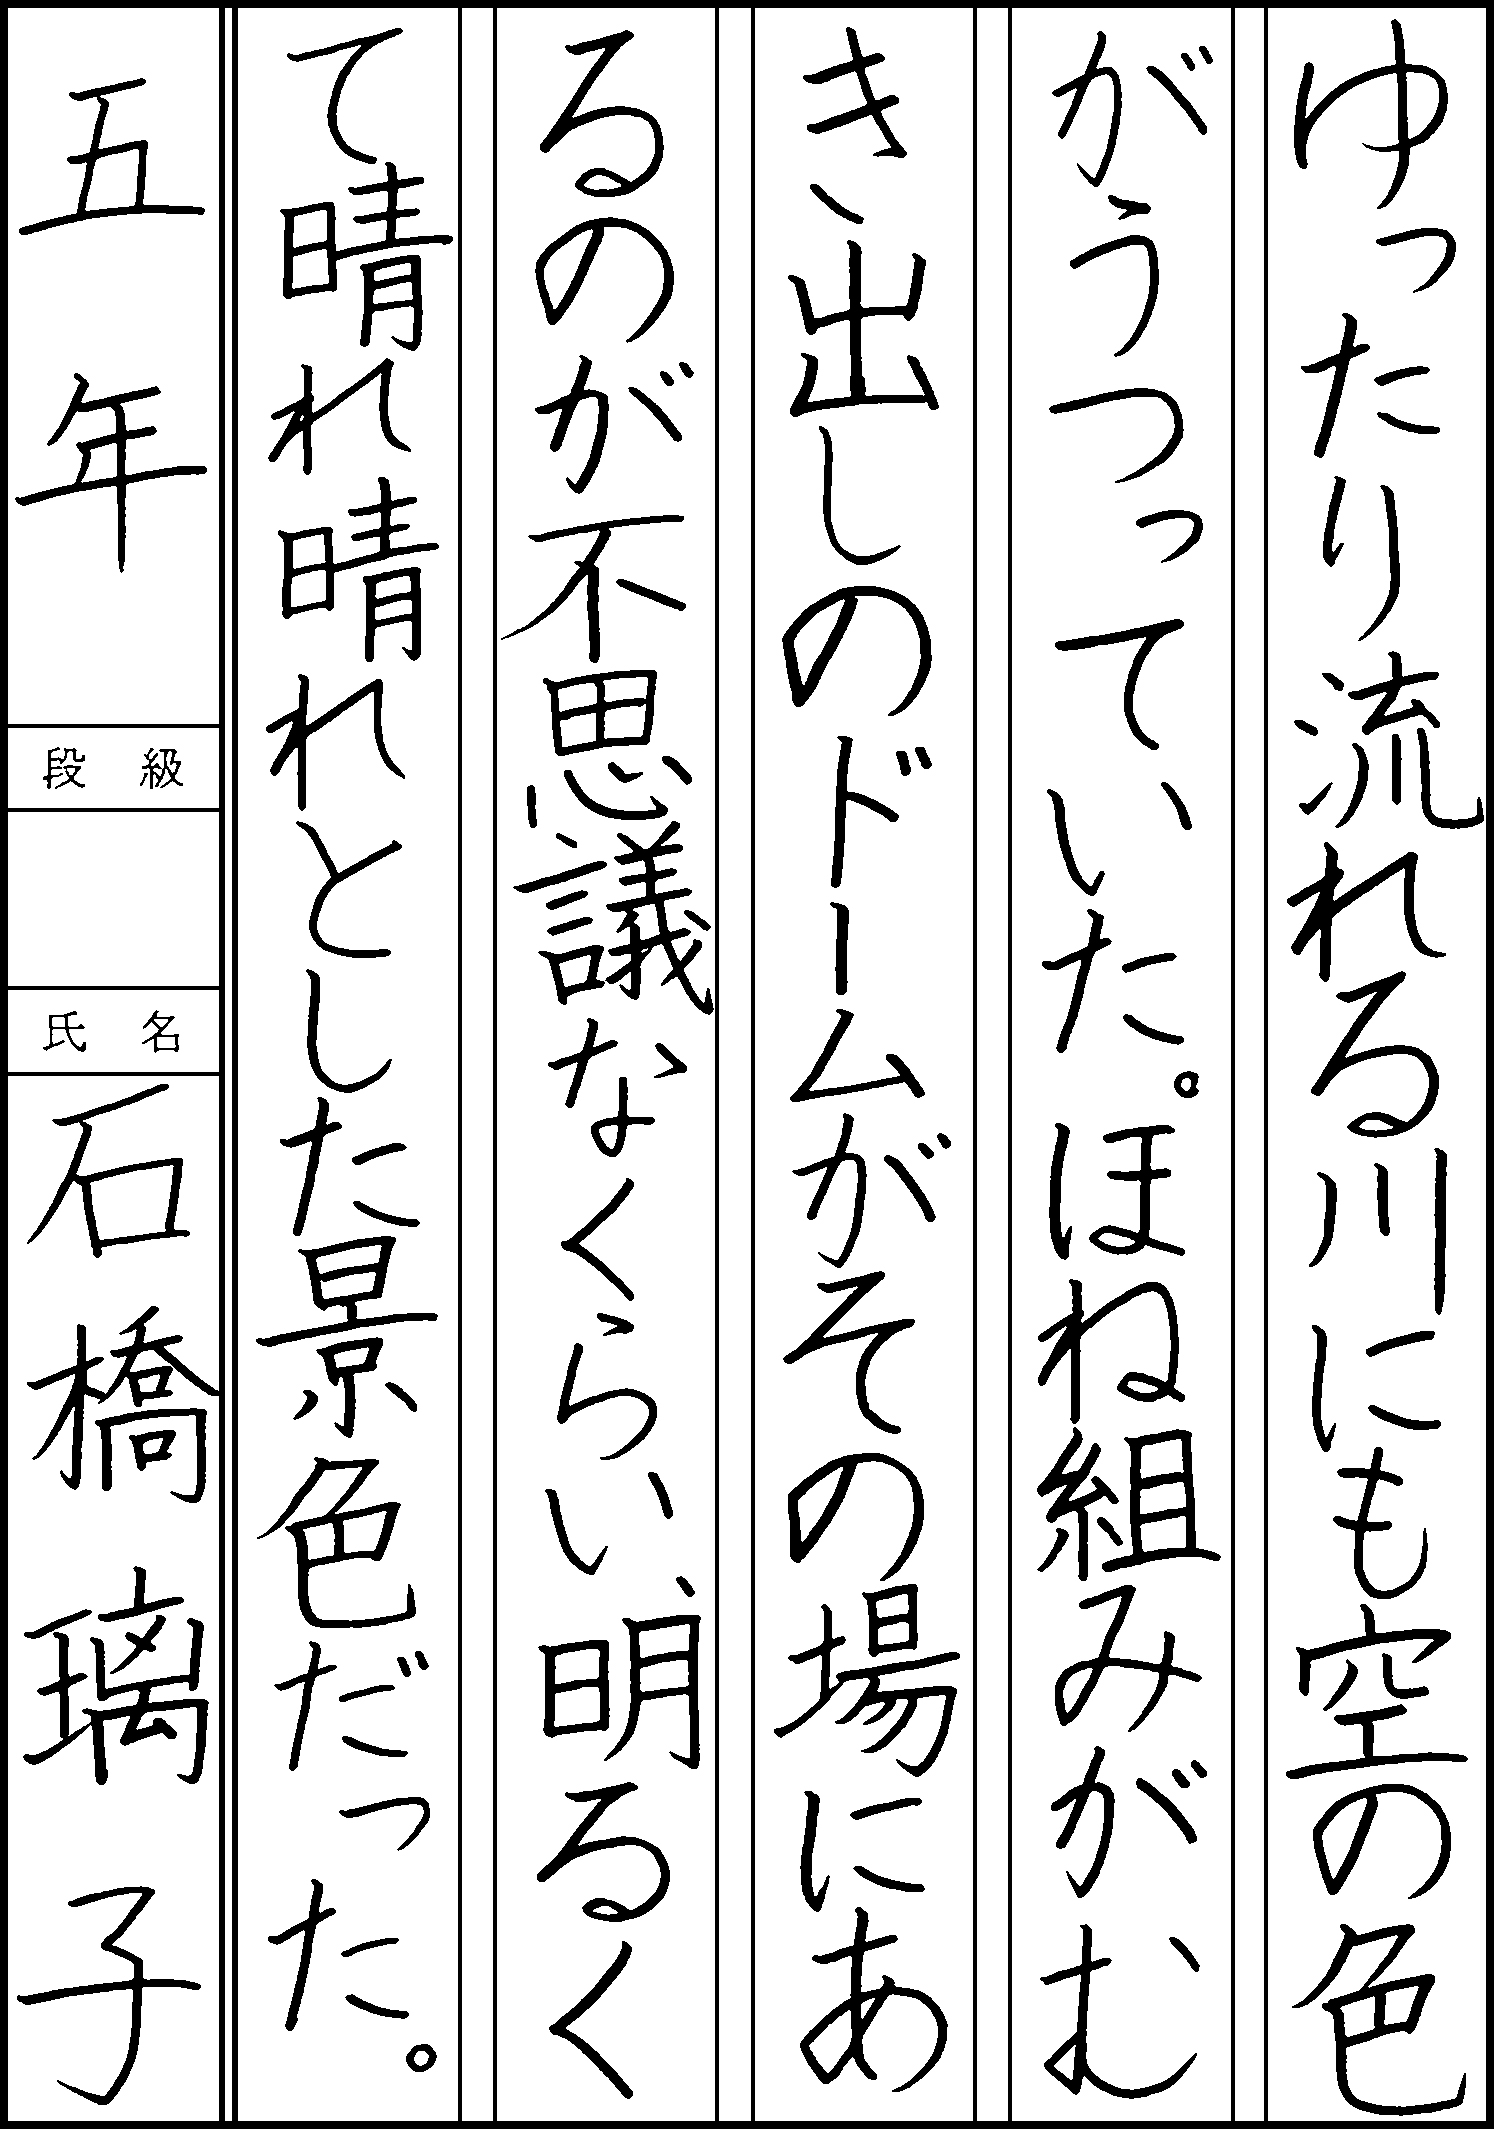 ゆったり流れる川にも空の色
がうつっていた。ほね組みがむ
き出しのドームがその場にあ
るのが不思議なくらい、明るく
て晴れ晴れとした景色だった。
五年
段級
氏名
石橋璃子